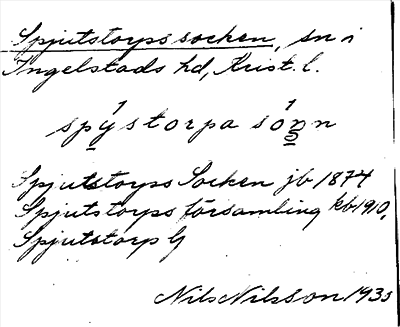 Spjutstorps socken, sn i
Ingelstads hd, Krist. l.
spýstorpa sónn
Spjutstorps Socken jb 1874
Spjutstorps församling kb 1910,
Spjutstorp G
Nils Nilsson 1933